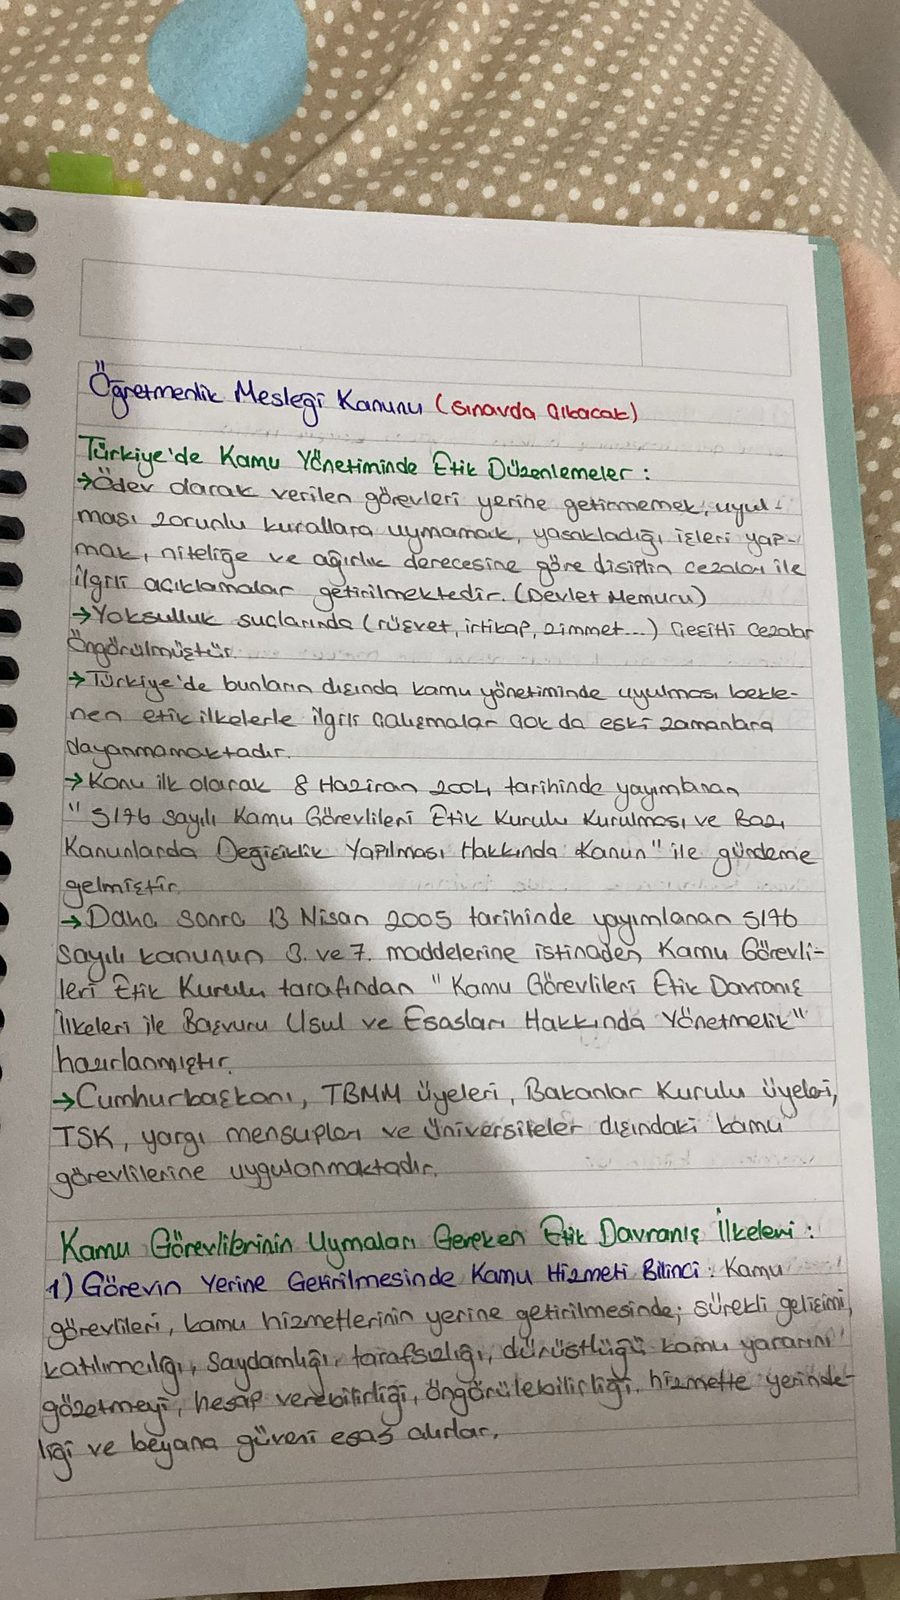 Öğretmenlik Mesleği Kanunu (sınavda çıkacak)
Türkiye'de Kamu Yönetiminde Etik Düzenlemeler :
→Ödev olarak verilen görevleri yerine getirmemek, uyul-
ması zorunlu kurallara uymamak, yasakladığı işleri yap-
mak, niteliğe ve ağırlık derecesine göre disiplin cezaları ile
ilgili açıklamalar getirilmektedir. (Devlet Memuru)
→Yoksulluk suçlarında (rüşvet, irtikap, zimmet...) çeşitli cezalar
öngörülmüştür.
→Türkiye'de bunların dışında kamu yönetiminde uyulması bekle-
nen etik ilkelerle ilgili çalışmalar çok da eski zamanlara
dayanmamaktadır.
→Konu ilk olarak 8 Haziran 2004 tarihinde yayımlanan
"5176 sayılı Kamu Görevlileri Etik Kurulu Kurulması ve Bazı
Kanunlarda Değişiklik Yapılması Hakkında Kanun" ile gündeme
gelmiştir.
→Daha sonra 13 Nisan 2005 tarihinde yayımlanan 5176
sayılı kanunun 3. ve 7. maddelerine istinaden Kamu Görevli-
leri Etik Kurulu tarafından "Kamu Görevlileri Etik Davranış
İlkeleri ile Başvuru Usul ve Esasları Hakkında Yönetmelik"
hazırlanmıştır.
→Cumhurbaşkanı, TBMM üyeleri, Bakanlar Kurulu üyeleri,
TSK, yargı mensupları ve üniversiteler dışındaki kamu
görevlilerine uygulanmaktadır.
Kamu Görevlilerinin Uymaları Gereken Etik Davranış İlkeleri :
1) Görevin Yerine Getirilmesinde Kamu Hizmeti Bilinci: Kamu
görevlileri, kamu hizmetlerinin yerine getirilmesinde; sürekli gelişimi,
katılımcılığı, saydamlığı, tarafsızlığı, dürüstlüğü kamu yararını
gözetmeyi, hesap verebilirliği, öngörülebilirliği, hizmette yerinde-
liği ve beyana güveni esas alırlar.